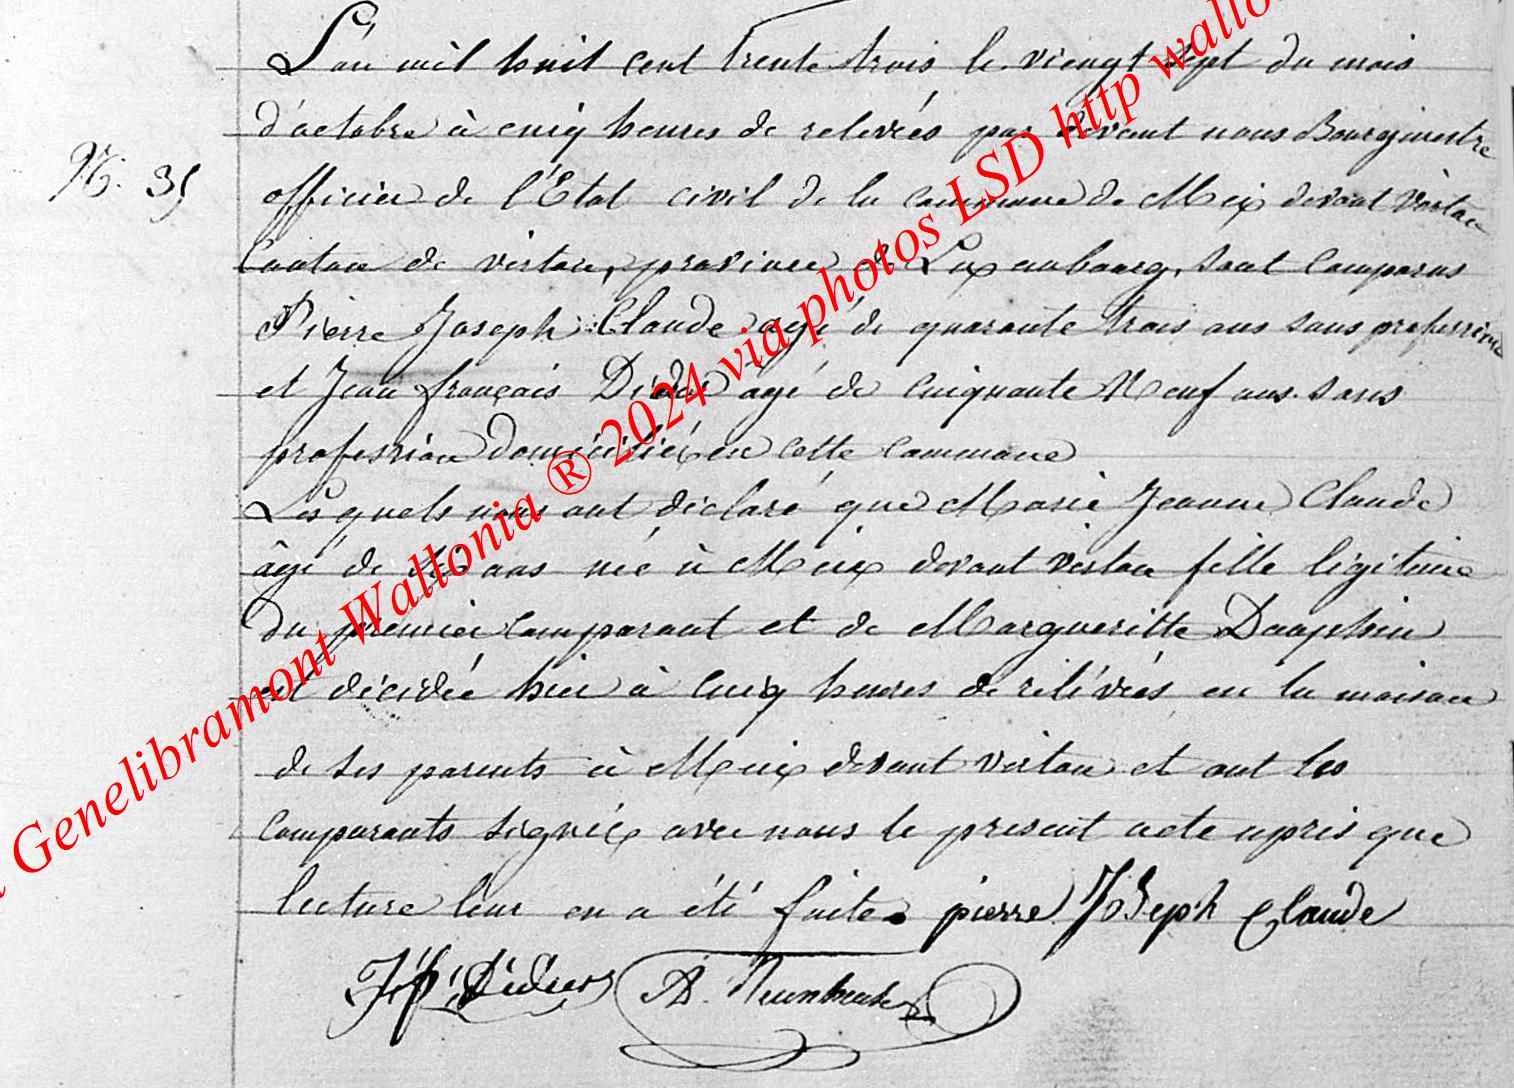 L'an mil huit cent trente trois le viengt sept du mois
d'actobre à cinq heures de relevées par devant nous Bourgmestre
N. 35
officier de l'Etat civil de la commune de Meix devant Virton
Canton de virton, province de Luxembourg, sont Comparus
Pierre Joseph Claude agé de quarante trois ans sans profession
et Jean françois Didier agé de cinquante Neuf ans sans
profession domicilié en cette commune
Les quels nous ont déclaré que Marie Jeanne Claude
âgé de ans né à Meix devant virton fille légitime
du premier comparant et de Margueritte Dauphin
est décédée hier à cinq heures de relévées en la maison
de ses parents à Meix devant virton et ont les
comparants signé avec nous le present acte apris que
lecture leur en a été faite. pierre JoSeph Claude
J f Didier A.
Genelibramont Wallonia ® 2024 via photos LSD http wallo